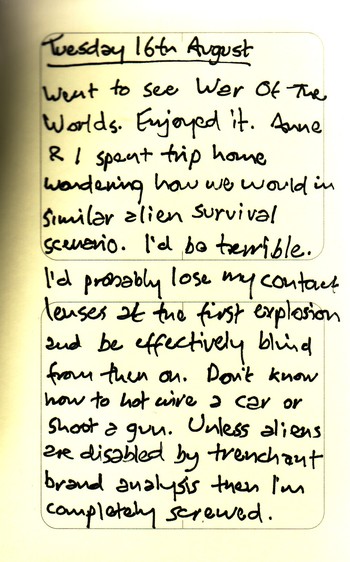 Tuesday 16th August
Went to see War Of The
Worlds. Enjoyed it. Anne
& I spent trip home
wondering how we would in
similar alien survival
scenario. I'd be terrible.
I'd probably lose my contact
lenses at the first explosion
and be effectively blind
from then on. Don't know
how to hot wire a car or
shoot a gun. Unless aliens
are disabled by trenchant
brand analysis then I'm
completely screwed.